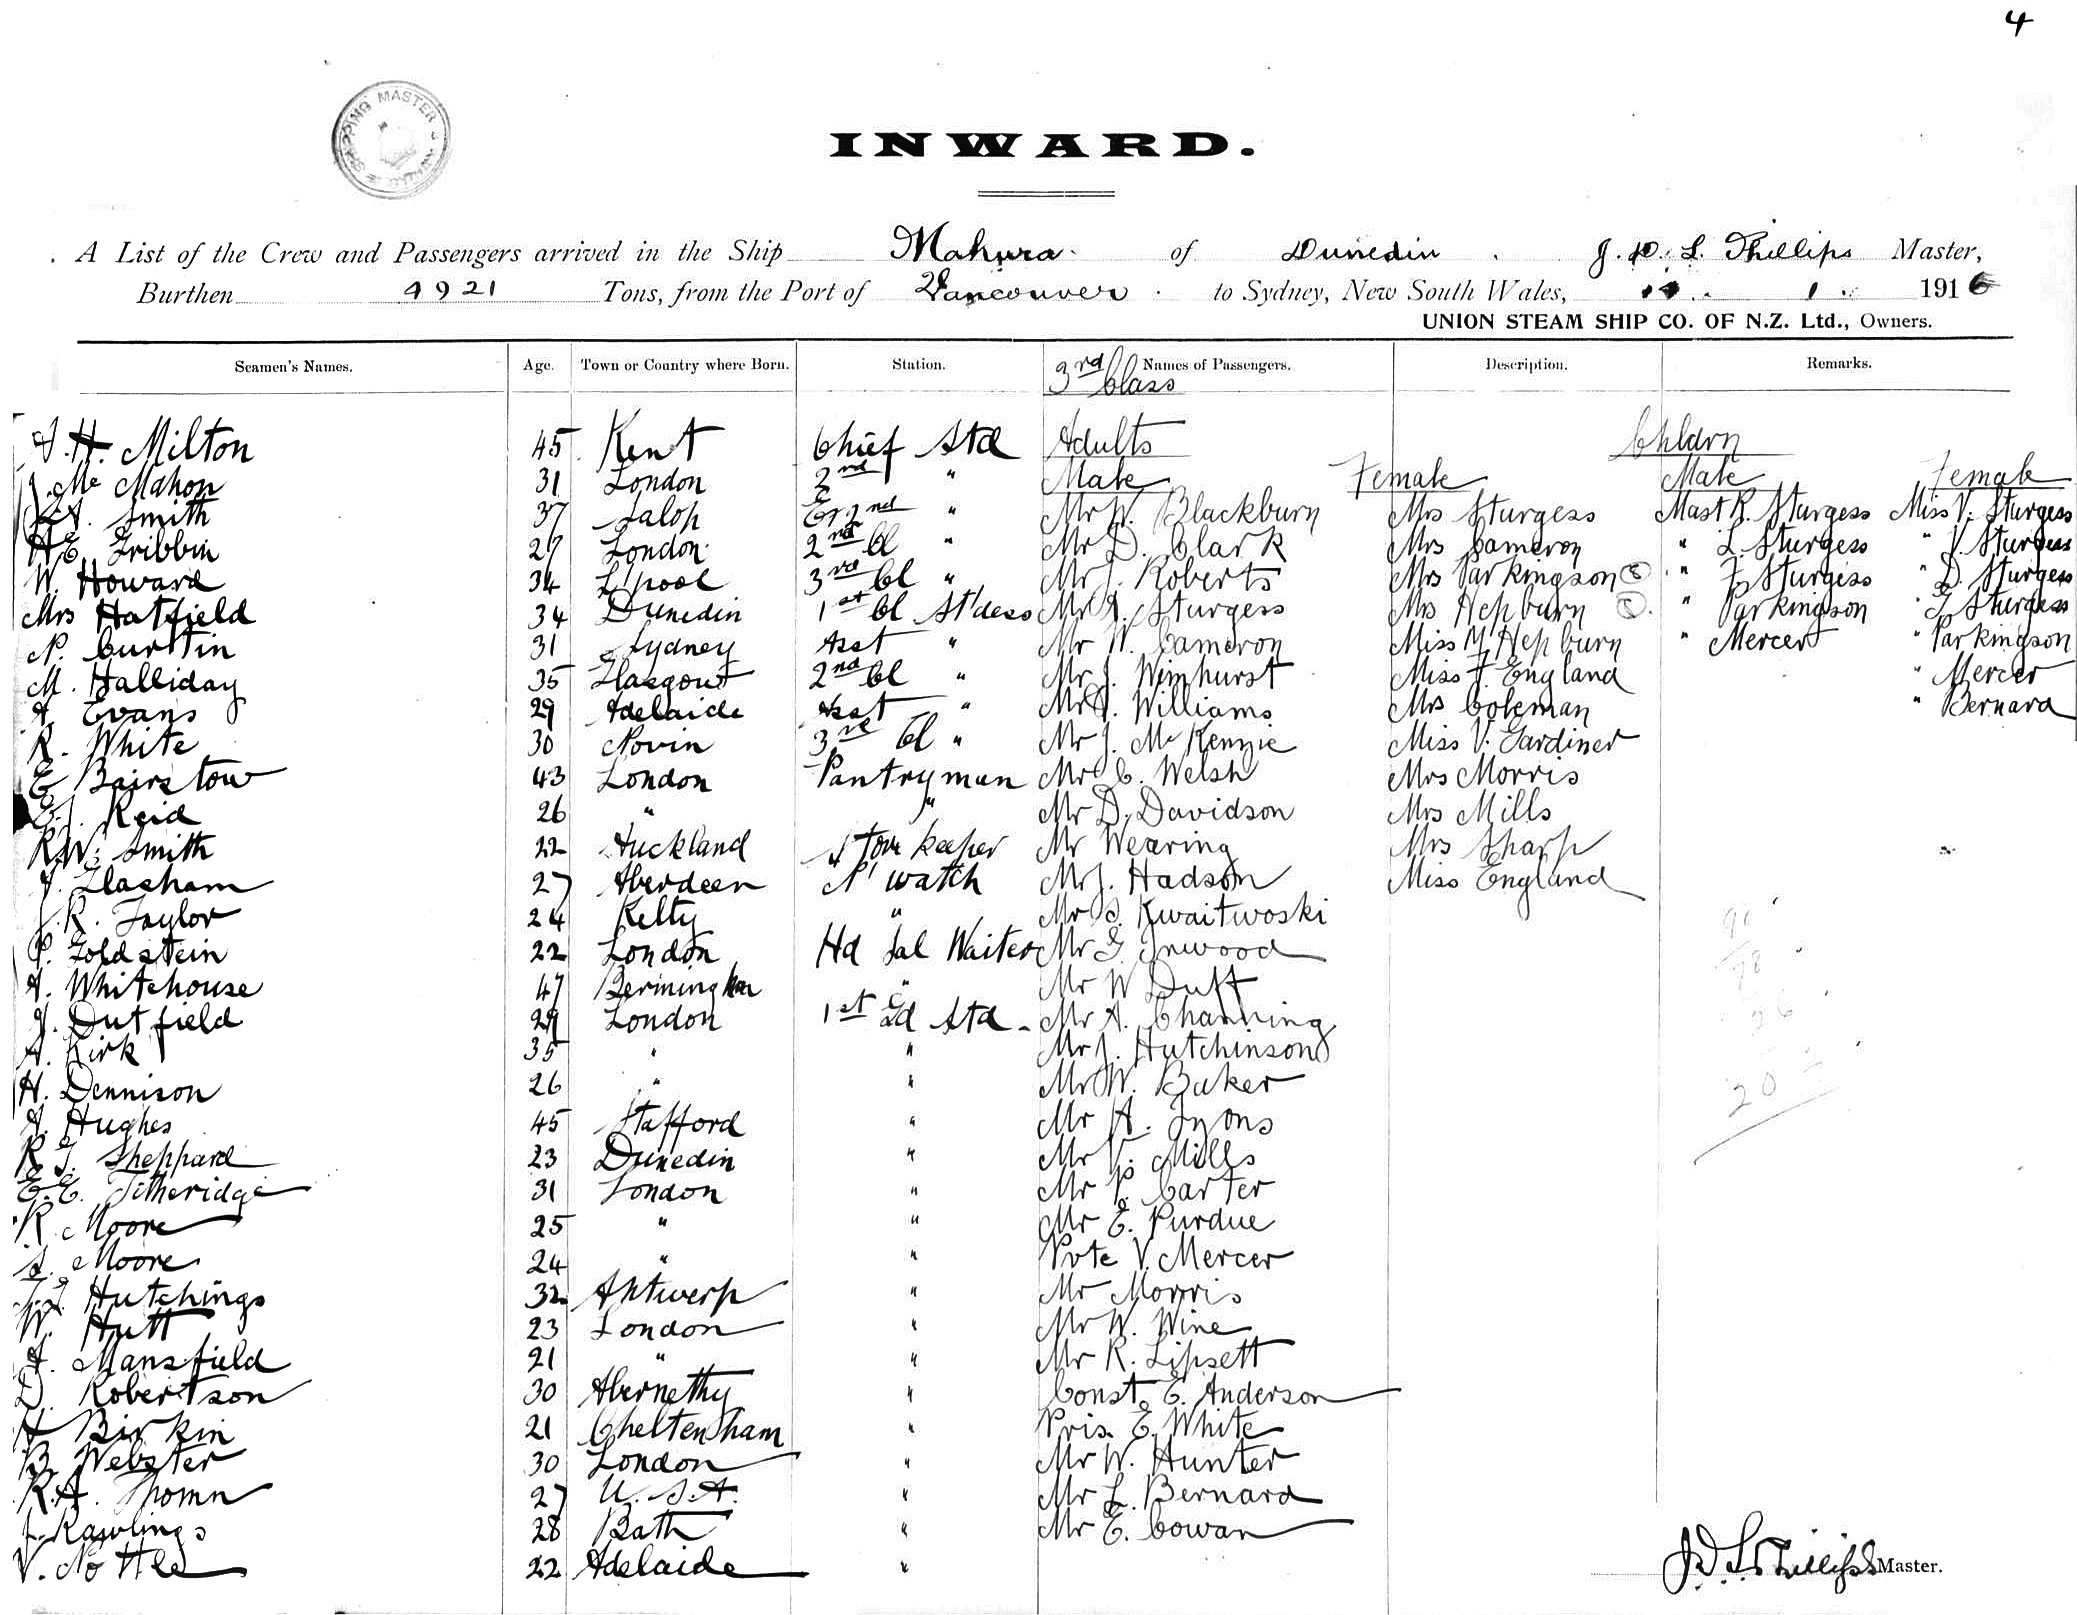 4
SHIPPING MASTER SYDNEY
INWARD.
A List of the Crew and Passengers arrived in the Ship Makura of Dunedin J. D. S. Phillips Master,
Burthen 4921 Tons, from the Port of Vancouver to Sydney, New South Wales, 1 1916
UNION STEAM SHIP CO. OF N.Z. Ltd., Owners.
Seamen's Names. Age. Town or Country where Born. Station. Names of Passengers. Description. Remarks.
3rd Class
H. Milton 45 Kent Chief Std Adults Chldrn
Mc Mahon 31 London 2nd " Male Female Male Female
Smith 37 Salop 2nd " Mr W. Blackburn Mrs Sturgess Mast R. Sturgess Miss V. Sturgess
H E Gribbin 27 London 2nd Cl " Mr D. Clark Mrs Cameron " L. Sturgess " V. Sturgess
W. Howard 34 L'pool 3rd Cl " Mr J. Roberts Mrs Parkingson " F. Sturgess " D. Sturgess
Mrs Hatfield 34 Dunedin 1st Cl St'dess Mr Sturgess Mrs Hepburn " Parkingson G Sturgess
N. Curtin 31 Sydney Asst " Mr W. Cameron Miss M Hepburn " Mercer " Parkingson
M. Halliday 35 Glasgow 2nd Cl " Mr J. Wimhurst Miss F. England " Mercer
A. Evans 29 Adelaide Asst " Mr Williams Mrs Coleman " Bernard
R. White 30 3rd Cl " Mr J. Mc Kenzie Miss V. Gardiner
E Bairstow 43 London Pantryman Mr C. Welsh Mrs Morris
Reid 26 " " Mr D. Davidson Mrs Mills
R.W. Smith 22 Auckland Store keeper Mr Wearing Mrs Sharp
27 Aberdeen N' watch Mr J. Hadson Miss England
J. R. Taylor 24 Kelty " Mr Kwaitwoski
P. Goldstein 22 London Hd Sal Waiter Mr G. Inwood
A. Whitehouse 47 " Mr W Duff
J. Dutfield 29 London 1st Std - Mr A. Channing
A. Kirk 35 " " Mr J. Hutchinson
H. Dennison 26 " " Mr W. Baker
J. Hughes 45 Stafford " Mr A. Lyons
R G. Sheppard 23 Dunedin " Mr V. Mills
E. E. Titheridge 31 London " Mr P. Carter
R. Moore 25 " " Mr E. Purdue
S. Moore 24 " " Pvte V. Mercer
Hutchings 32 Antwerp " Mr Morris
W. Hutt 23 London " Mr W. Wine
A. Mansfield 21 " " Mr R. Lipsett
D. Robertson 30 Abernethy " Const. E. Anderson
A Birkin 21 Cheltenham " Pris. E. White
B. Webster 30 London " Mr W. Hunter
R. A. 27 U.S.A. " Mr L. Bernard
J. Rawlings 28 Bath " Mr E. Cowan
V. Nottle 22 Adelaide "
J. D. S. Phillips Master.